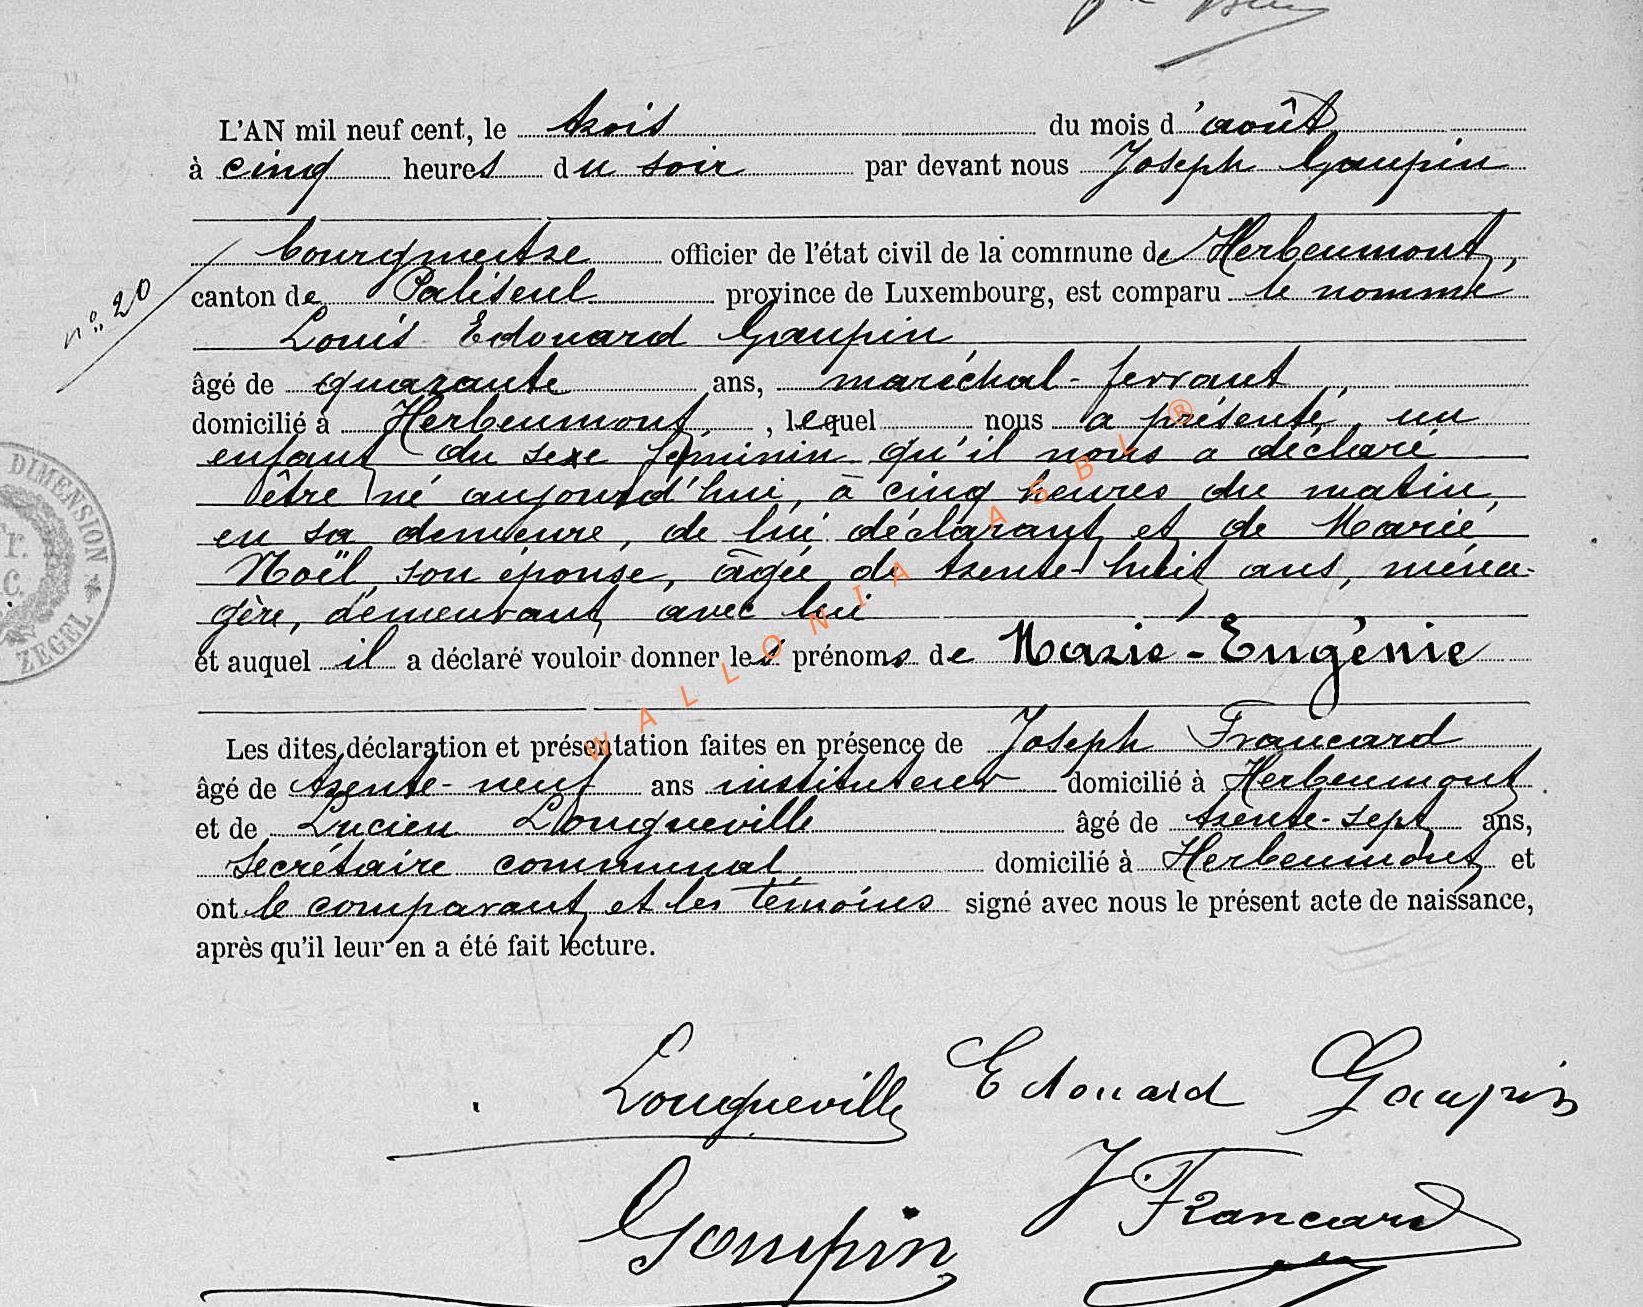 L'AN mil neuf cent, le trois du mois d'août
à cinq heures du soir par devant nous Joseph Gaupin
bourgmestre officier de l'état civil de la commune de Herbeumont,
n° 20
canton de Paliseul province de Luxembourg, est comparu le nommé
Louis Edouard Gaupin
âgé de quarante ans, maréchal-ferrant,
domicilié à Herbeumont, lequel nous a présenté un
enfant du sexe féminin qu'il nous a déclaré
être né aujourd'hui, à cinq heures du matin,
en sa demeure, de lui déclarant et de Marie
Noël, son épouse, âgée de trente-huit ans, ména-
gère, demeurant avec lui
et auquel il a déclaré vouloir donner les prénoms de Marie-Eugénie
Les dites déclaration et présentation faites en présence de Joseph Francard
âgé de trente-neuf ans instituteur domicilié à Herbeumont
et de Lucien Longueville âgé de trente-sept ans,
secrétaire communal domicilié à Herbeumont et
ont le comparant et les témoins signé avec nous le présent acte de naissance,
après qu'il leur en a été fait lecture.
Longueville Edouard Gaupin
Gaupin J Francard
DIMENSION
ZEGEL
WALLONIA ASBL ®